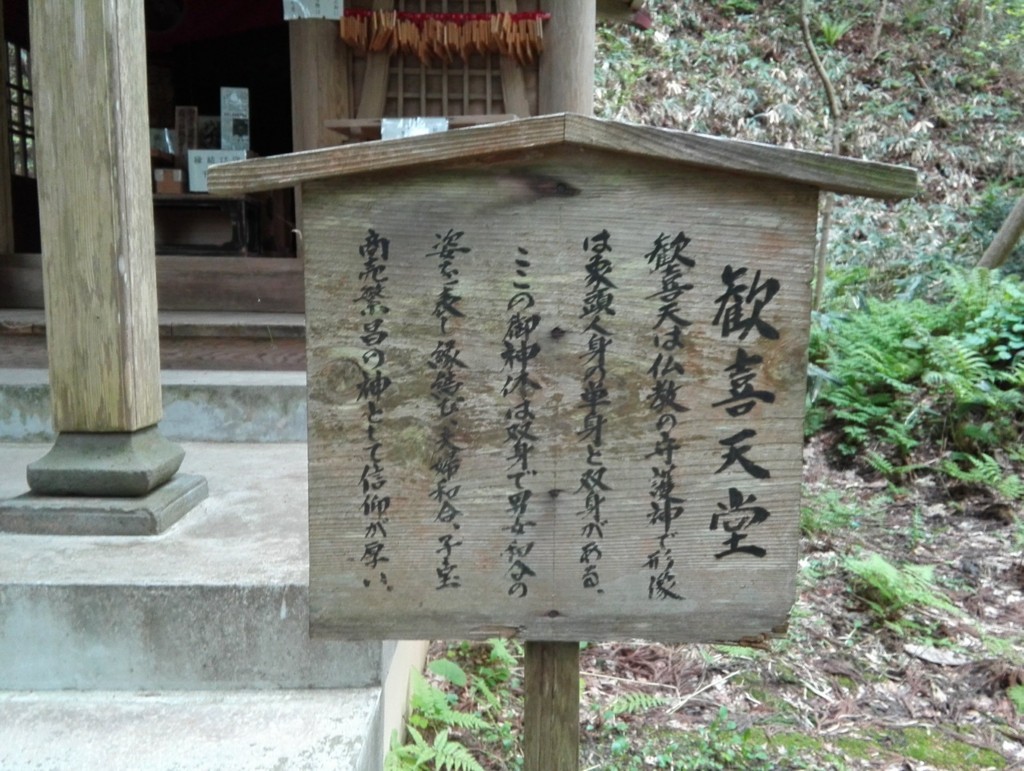 歓喜天堂
歓喜天は仏教の守護神で形像
は象頭人身の単身と双身がある。
ここの御神体は双身で男女和合の
姿を表し縁結び、夫婦和合、子宝
商売繁昌の神として信仰が厚い。